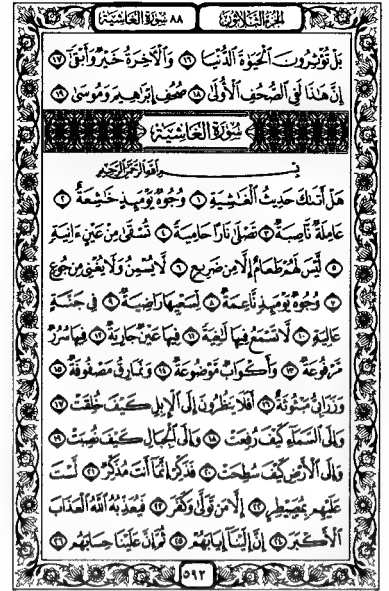 الجزء الثلاثون
٨٨ سورة الغاشية
بَلْ تُؤْثِرُونَ الْحَيَوٰةَ الدُّنْيَا ١٦ وَالْآخِرَةُ خَيْرٌ وَأَبْقَىٰ ١٧
إِنَّ هَٰذَا لَفِي الصُّحُفِ الْأُولَىٰ ١٨ صُحُفِ إِبْرَاهِيمَ وَمُوسَىٰ ١٩
سورة الغاشية
بِسْمِ اللَّهِ الرَّحْمَٰنِ الرَّحِيمِ
هَلْ أَتَىٰكَ حَدِيثُ الْغَاشِيَةِ ١ وُجُوهٌ يَوْمَئِذٍ خَاشِعَةٌ ٢
عَامِلَةٌ نَاصِبَةٌ ٣ تَصْلَىٰ نَارًا حَامِيَةً ٤ تُسْقَىٰ مِنْ عَيْنٍ ءَانِيَةٍ
٥ لَّيْسَ لَهُمْ طَعَامٌ إِلَّا مِن ضَرِيعٍ ٦ لَّا يُسْمِنُ وَلَا يُغْنِي مِن جُوعٍ
٧ وُجُوهٌ يَوْمَئِذٍ نَّاعِمَةٌ ٨ لِّسَعْيِهَا رَاضِيَةٌ ٩ فِي جَنَّةٍ
عَالِيَةٍ ١٠ لَّا تَسْمَعُ فِيهَا لَٰغِيَةً ١١ فِيهَا عَيْنٌ جَارِيَةٌ ١٢ فِيهَا سُرُرٌ
مَّرْفُوعَةٌ ١٣ وَأَكْوَابٌ مَّوْضُوعَةٌ ١٤ وَنَمَارِقُ مَصْفُوفَةٌ ١٥
وَزَرَابِيُّ مَبْثُوثَةٌ ١٦ أَفَلَا يَنظُرُونَ إِلَى الْإِبِلِ كَيْفَ خُلِقَتْ ١٧
وَإِلَى السَّمَاءِ كَيْفَ رُفِعَتْ ١٨ وَإِلَى الْجِبَالِ كَيْفَ نُصِبَتْ ١٩
وَإِلَى الْأَرْضِ كَيْفَ سُطِحَتْ ٢٠ فَذَكِّرْ إِنَّمَا أَنتَ مُذَكِّرٌ ٢١ لَّسْتَ
عَلَيْهِم بِمُصَيْطِرٍ ٢٢ إِلَّا مَن تَوَلَّىٰ وَكَفَرَ ٢٣ فَيُعَذِّبُهُ اللَّهُ الْعَذَابَ
الْأَكْبَرَ ٢٤ إِنَّ إِلَيْنَا إِيَابَهُمْ ٢٥ ثُمَّ إِنَّ عَلَيْنَا حِسَابَهُم ٢٦
٥٩٢